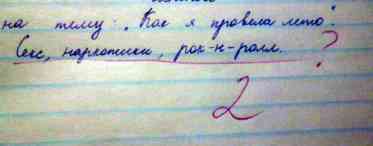 на тему: „Как я провела лето".
Секс, наркотики, рок-н-ролл. ?
2